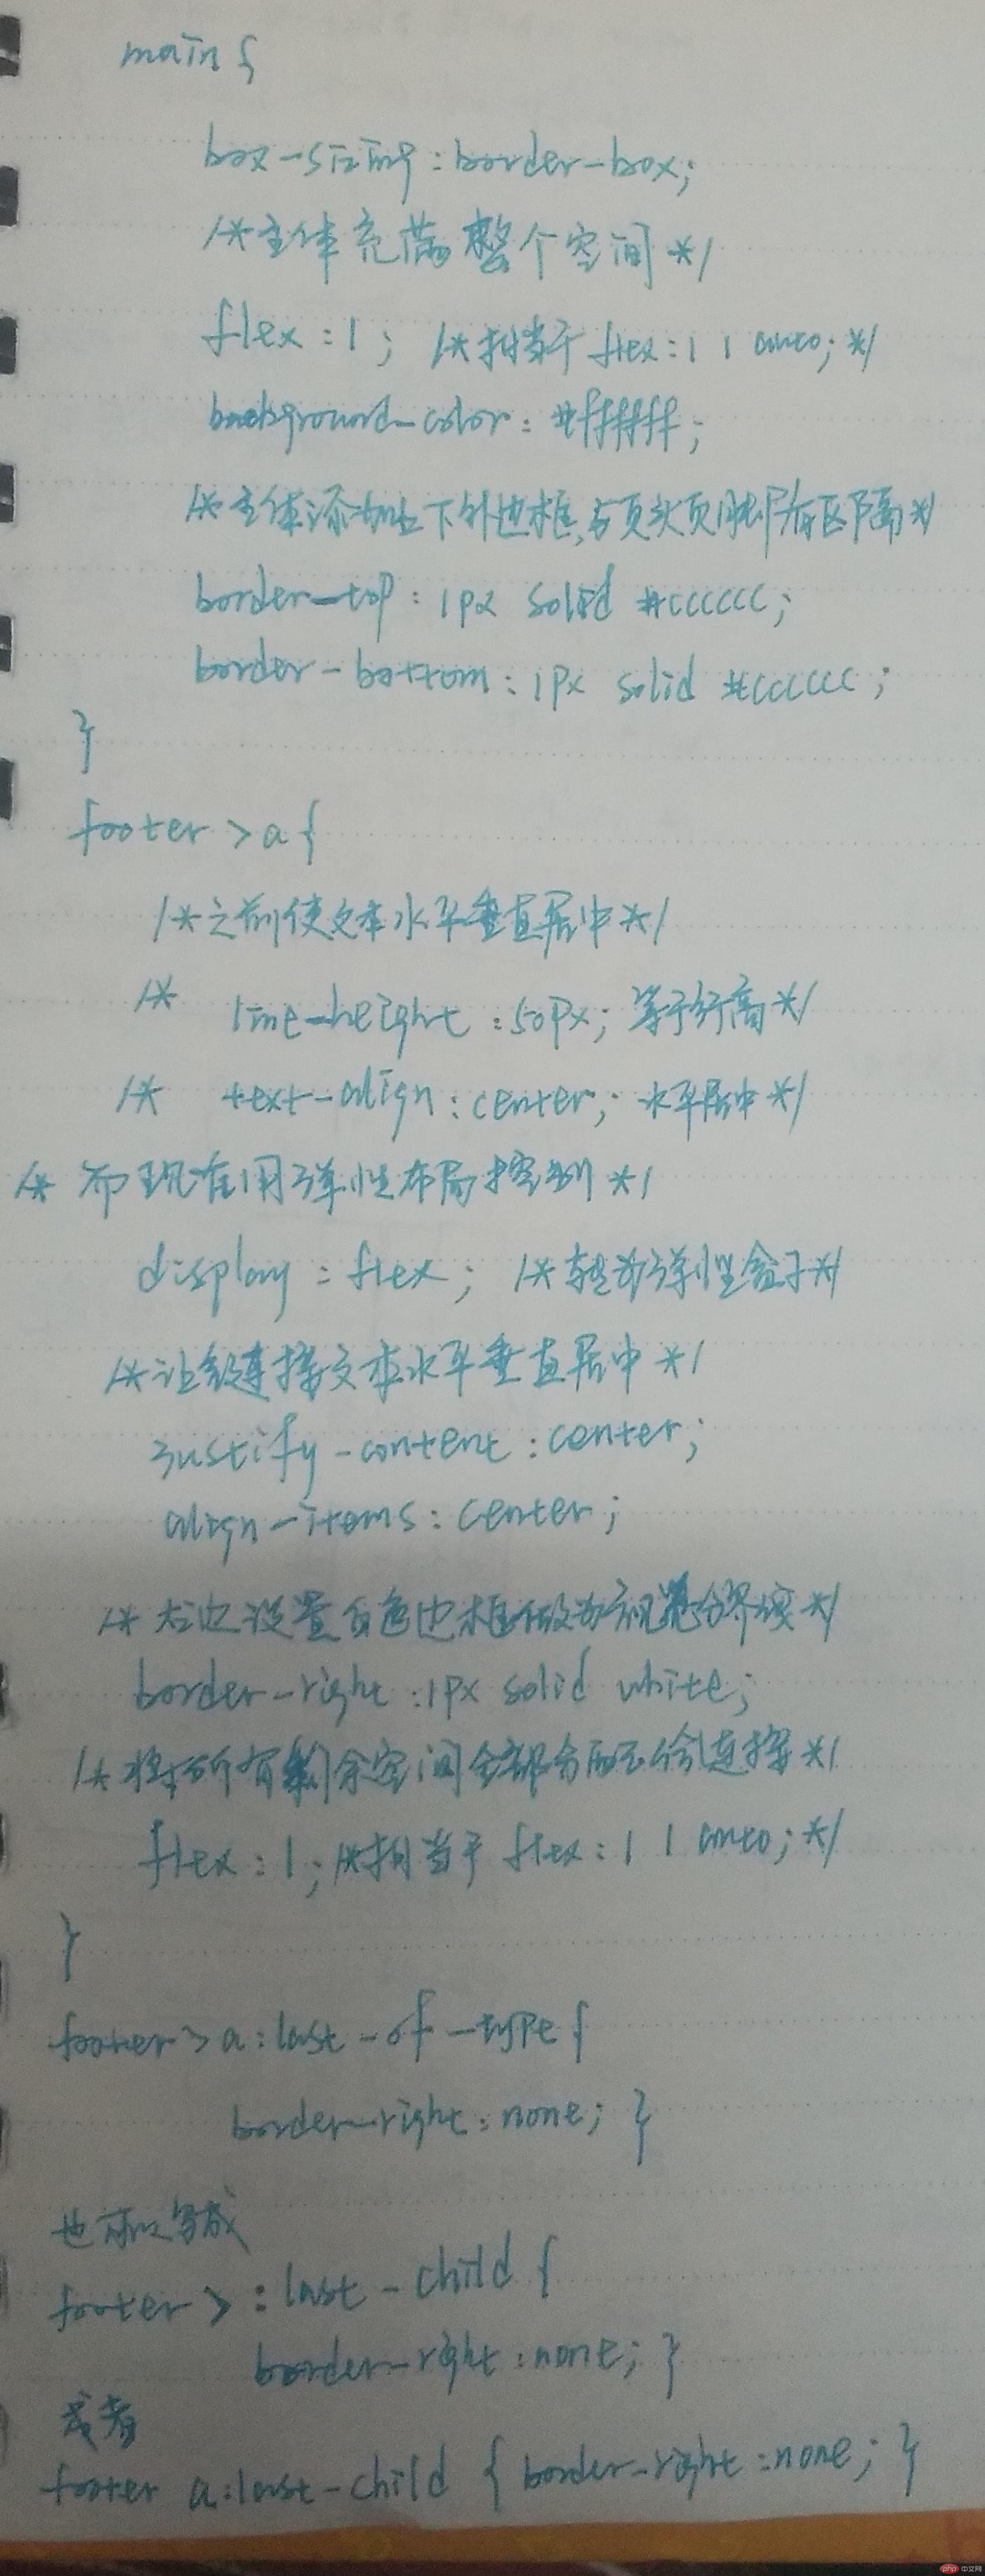 main {
box-sizing : border-box;
/*主体充满整个空间*/
flex : 1 ; /*相当于 flex : 1 1 auto; */
background-color : #ffffff;
/*主体添加上下外边框,与页头页脚有区隔*/
border-top : 1px solid #cccccc;
border-bottom : 1px solid #cccccc;
}
footer > a {
/*之前使文本水平垂直居中*/
/* line-height : 50px; 等于行高*/
/* text-align : center; 水平居中*/
/* 而现在用弹性布局控制 */
display : flex ; /*转为弹性盒子*/
/*让链接文本水平垂直居中*/
justify-content : center;
align-items : center;
/*右边设置白色边框做为视觉分界线*/
border-right : 1px solid white;
/*将所有剩余空间全部分配给连接*/
flex : 1; /*相当于 flex : 1 1 auto; */
}
footer > a : last-of-type {
border-right : none; }
也可以写成
footer > : last-child {
border-right : none; }
或者
footer a:last-child { border-right : none; }
php 中文网